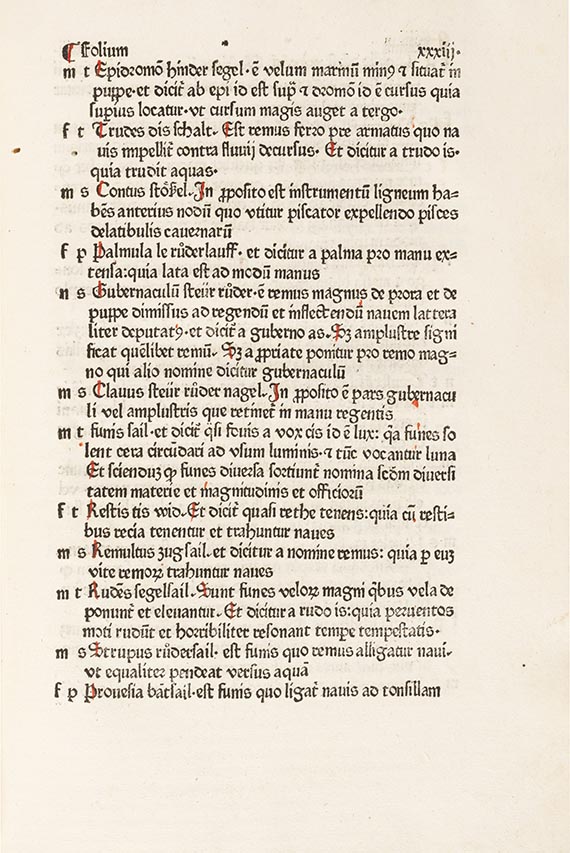 ¶ Folium xxxiij.
m t Epidromō hinder segel. ē velum marinū minꝰ ⁊ situat̄ in
puppe. et dicit̄ ab epi id est supꝛ̄ ⁊ dromō id ē cursus quia
superius locatur. vt cursum magis auget a tergo.
f t Trudes dis schalt. Est remus ferro pre armatus quo na
uis impellit̄ contra fluuij decursus. Et dicitur a trudo is.
quia trudit aquas.
m s Contus stoͤkel. In ꝓposito est instrumentū ligneum ha-
bēs anterius nodū quo vtitur piscator expellendo pisces
delatibulis cauernarū
f p Palmula le ruͦderlauff. et dicitur a palma pro manu ex-
tensa: quia lata est ad modū manus
n s Gubernaculū steür ruͦder. ē remus magnus de prora et de
puppe dimissus ad regendū et inflectendū nauem lattera
liter deputatꝰ. et dicit̄ a guberno as. Sꝫ amplustre signi
ficat quēlibet remū. Sꝫ a ꝓpriate ponitur pro remo mag-
no qui alio nomine dicitur gubernaculū
m s Clauus steür ruͦder nagel. In ꝓposito ē pars gubernacu
li vel amplustris que retinet̄ in manu regentis
m t funis sail. et dicit̄ q̄si fouis a vox cis id ē lux: q̄a funes so
lent cera circūdari ad vsum luminis. ⁊ tūc vocantur luna
Et sciendūꝫ ꝙ funes diuersa sortiunt̄ nomina scd̄m diuersi
tatem materie et magnitudinis et officiorū
f t Restis tis wid. Et dicit̄ quasi rethe tenens: quia cū resti-
bus recia tenentur et trahuntur naues
m s Remultus zugsail. et dicitur a nomine remus: quia ꝑ euꝫ
vite remoꝝ trahuntur naues
m t Rudēs segelsail. Sunt funes veloꝝ magni q̄bus vela de
ponunt̄ et eleuantur. Et dicitur a rudo is: quia per ventos
moti rudūt et horribiliter resonant tempe tempestatis.
m s Strupus ruͦdersail. est funis quo remus alligatur naui.
vt equaliter pendeat versus aquā
f p Prouesia bātsail. est funis quo ligat̄ nauis ad tonsillam